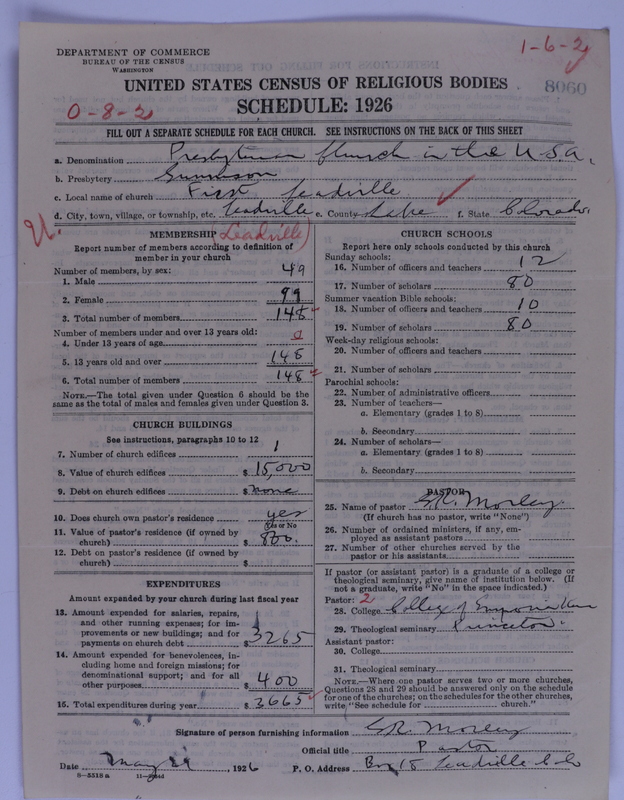 DEPARTMENT OF COMMERCE
BUREAU OF THE CENSUS
WASHINGTON
1-6-2
UNITED STATES CENSUS OF RELIGIOUS BODIES
8060
SCHEDULE: 1926
0-8-2
FILL OUT A SEPARATE SCHEDULE FOR EACH CHURCH. SEE INSTRUCTIONS ON THE BACK OF THIS SHEET
a. Denomination Presbyterian Church in the U.S.A.
b. Presbytery Gunnison
c. Local name of church First Leadville
d. City, town, village, or township, etc. Leadville e. County Lake f. State Colorado.
U. (Leadville)
MEMBERSHIP
Report number of members according to definition of
member in your church
Number of members, by sex:
1. Male 49
2. Female 99
3. Total number of members 148
Number of members under and over 13 years old:
4. Under 13 years of age 0
5. 13 years old and over 148
6. Total number of members 148
NOTE.—The total given under Question 6 should be the
same as the total of males and females given under Question 3.
CHURCH BUILDINGS
See instructions, paragraphs 10 to 12
7. Number of church edifices 1
8. Value of church edifices $15,000
9. Debt on church edifices $none
10. Does church own pastor's residence yes
Yes or No
11. Value of pastor's residence (if owned by
church) $800.
12. Debt on pastor's residence (if owned by
church) $
EXPENDITURES
Amount expended by your church during last fiscal year
13. Amount expended for salaries, repairs,
and other running expenses; for im-
provements or new buildings; and for
payments on church debt $3265
14. Amount expended for benevolences, in-
cluding home and foreign missions; for
denominational support; and for all
other purposes $400
15. Total expenditures during year $3665
CHURCH SCHOOLS
Report here only schools conducted by this church
Sunday schools:
16. Number of officers and teachers 12
17. Number of scholars 80
Summer vacation Bible schools:
18. Number of officers and teachers 10
19. Number of scholars 80
Week-day religious schools:
20. Number of officers and teachers
21. Number of scholars
Parochial schools:
22. Number of administrative officers
23. Number of teachers—
a. Elementary (grades 1 to 8)
b. Secondary
24. Number of scholars—
a. Elementary (grades 1 to 8)
b. Secondary
PASTOR
25. Name of pastor G.R. Morley
(If church has no pastor, write "None")
26. Number of ordained ministers, if any, em-
ployed as assistant pastors
27. Number of other churches served by the
pastor or his assistants
If pastor (or assistant pastor) is a graduate of a college or
theological seminary, give name of institution below. (If
not a graduate, write "No" in the space indicated.)
Pastor: 2
28. College College of Emporia Kan
29. Theological seminary Princeton.
Assistant pastor:
30. College
31. Theological seminary
NOTE.—Where one pastor serves two or more churches,
Questions 28 and 29 should be answered only on the schedule
for one of the churches; on the schedules for the other churches,
write "See schedule for church."
Signature of person furnishing information G.R. Morley
Official title Pastor
Date May 29, 1926 P. O. Address Box 18 Leadville Colo
8-5518 a